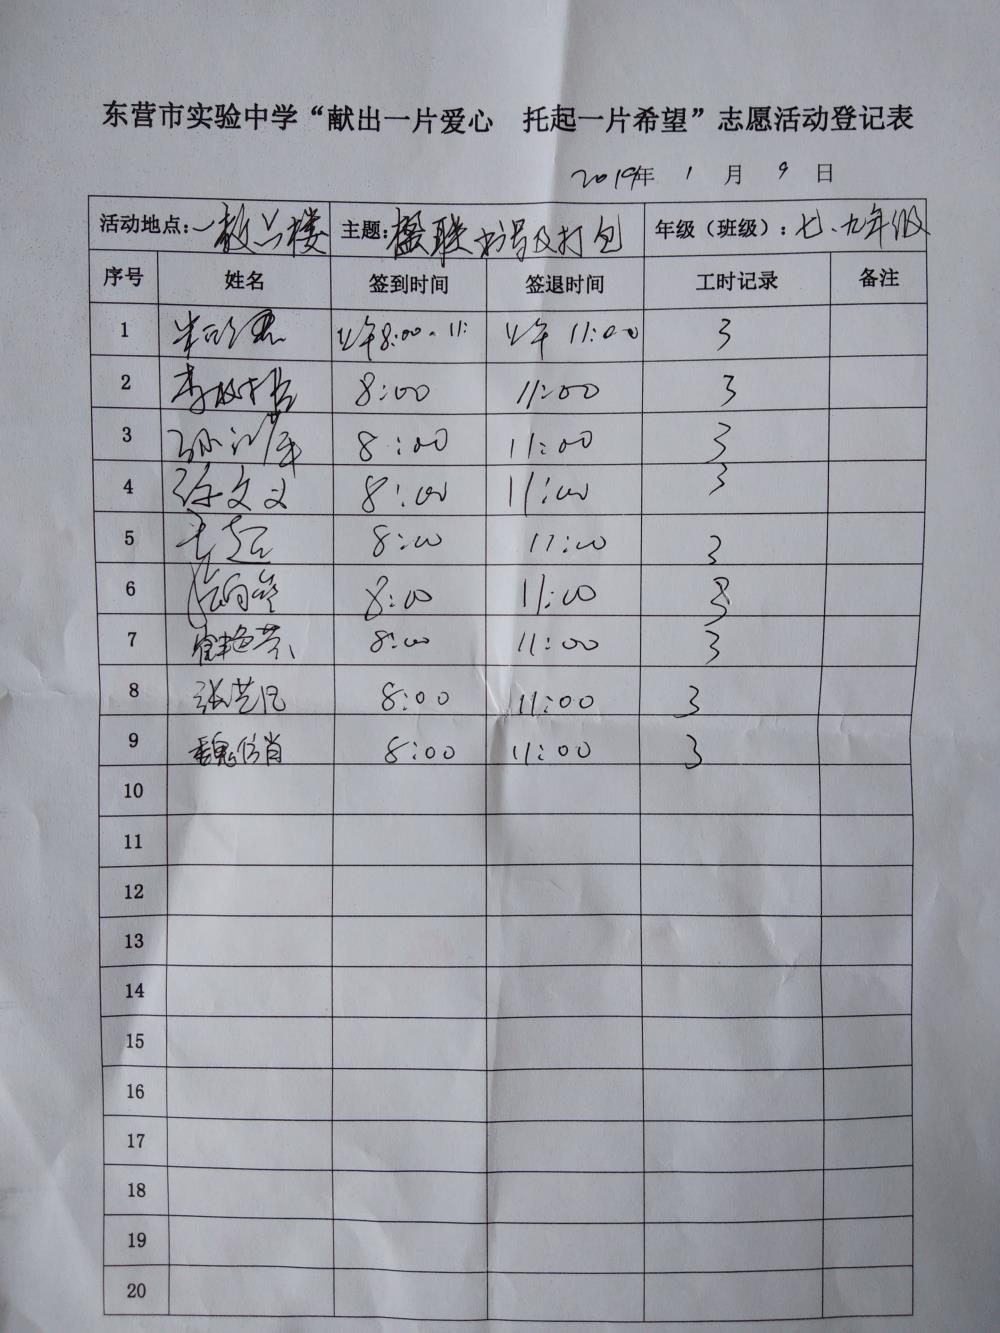 东营市实验中学“献出一片爱心 托起一片希望”志愿活动登记表
2019年 1 月 9 日
活动地点:一教六楼 主题:楹联书写及打包 年级（班级）:七、九年级
序号 姓名 签到时间 签退时间 工时记录 备注
1 上午8:00-11: 上午 11:00 3
2 8:00 11:00 3
3 8:00 11:00 3
4 徐文文 8:00 11:00 3
5 王超 8:00 11:00 3
6 8:00 11:00 3
7 8:00 11:00 3
8 张艺凡 8:00 11:00 3
9 魏信肖 8:00 11:00 3
10
11
12
13
14
15
16
17
18
19
20